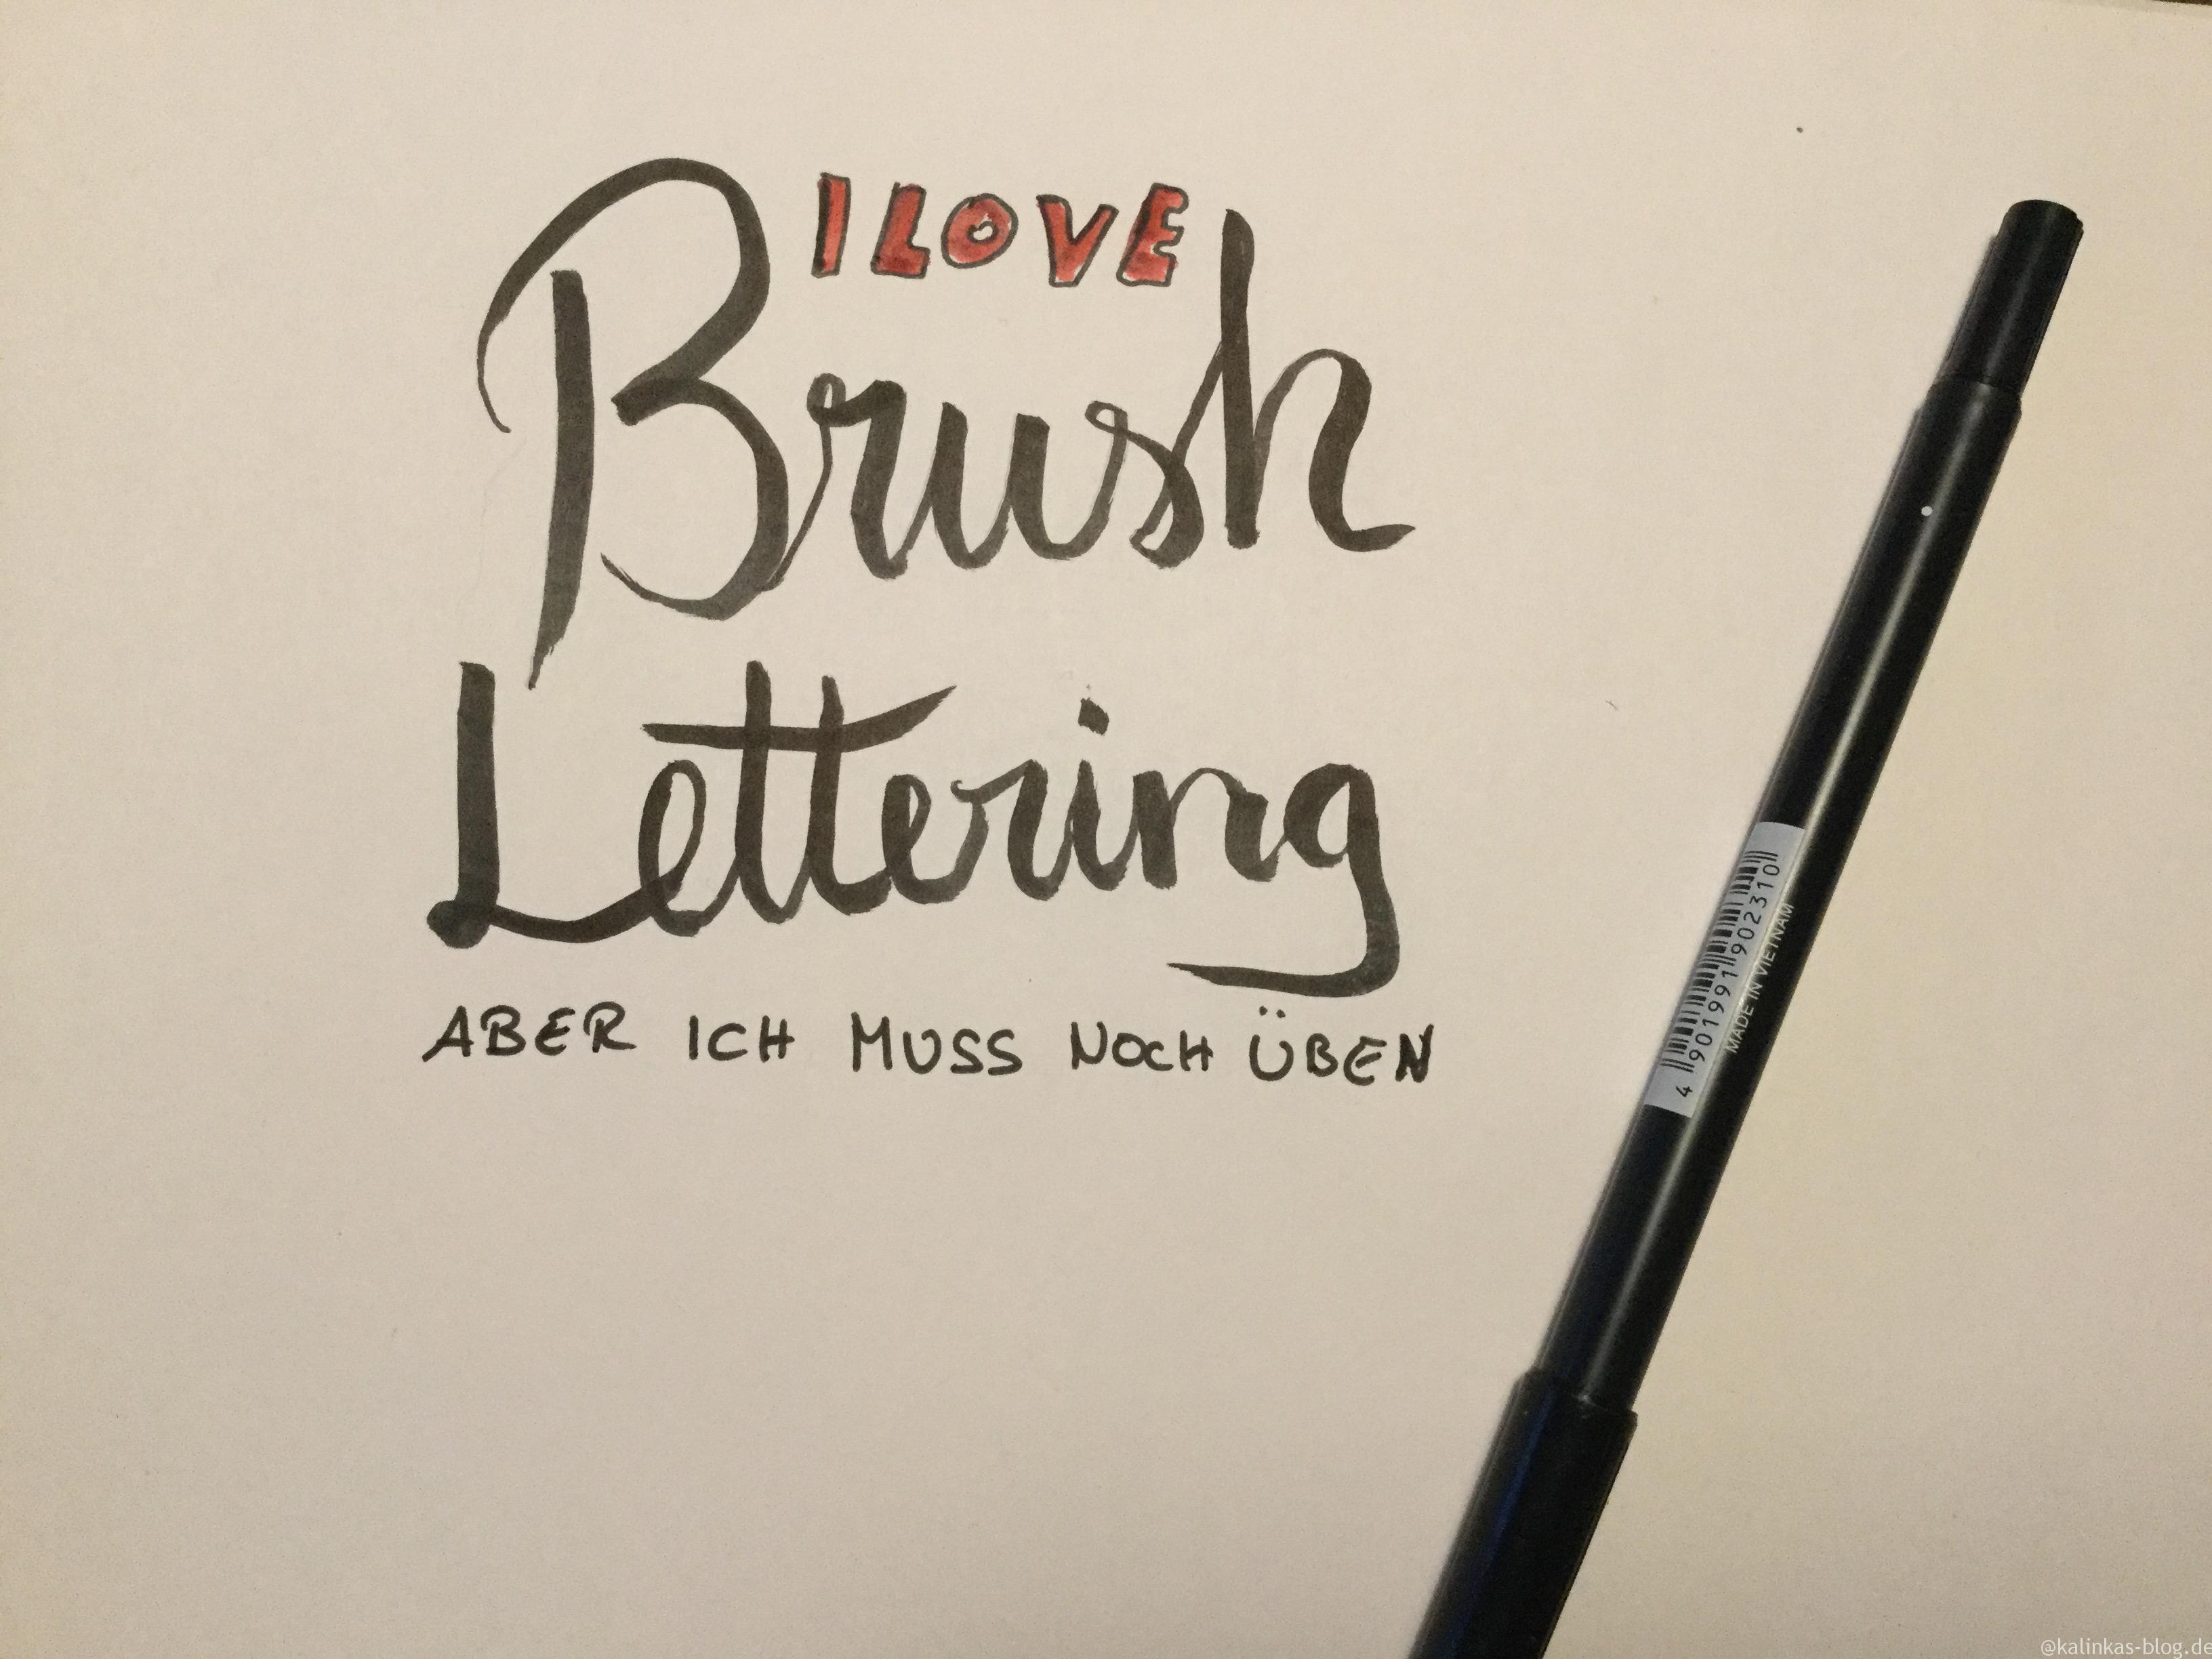 I LOVE
Brush
Lettering
ABER ICH MUSS NOCH ÜBEN
4 901991 902310
MADE IN VIETNAM
@kalinkas-blog.de